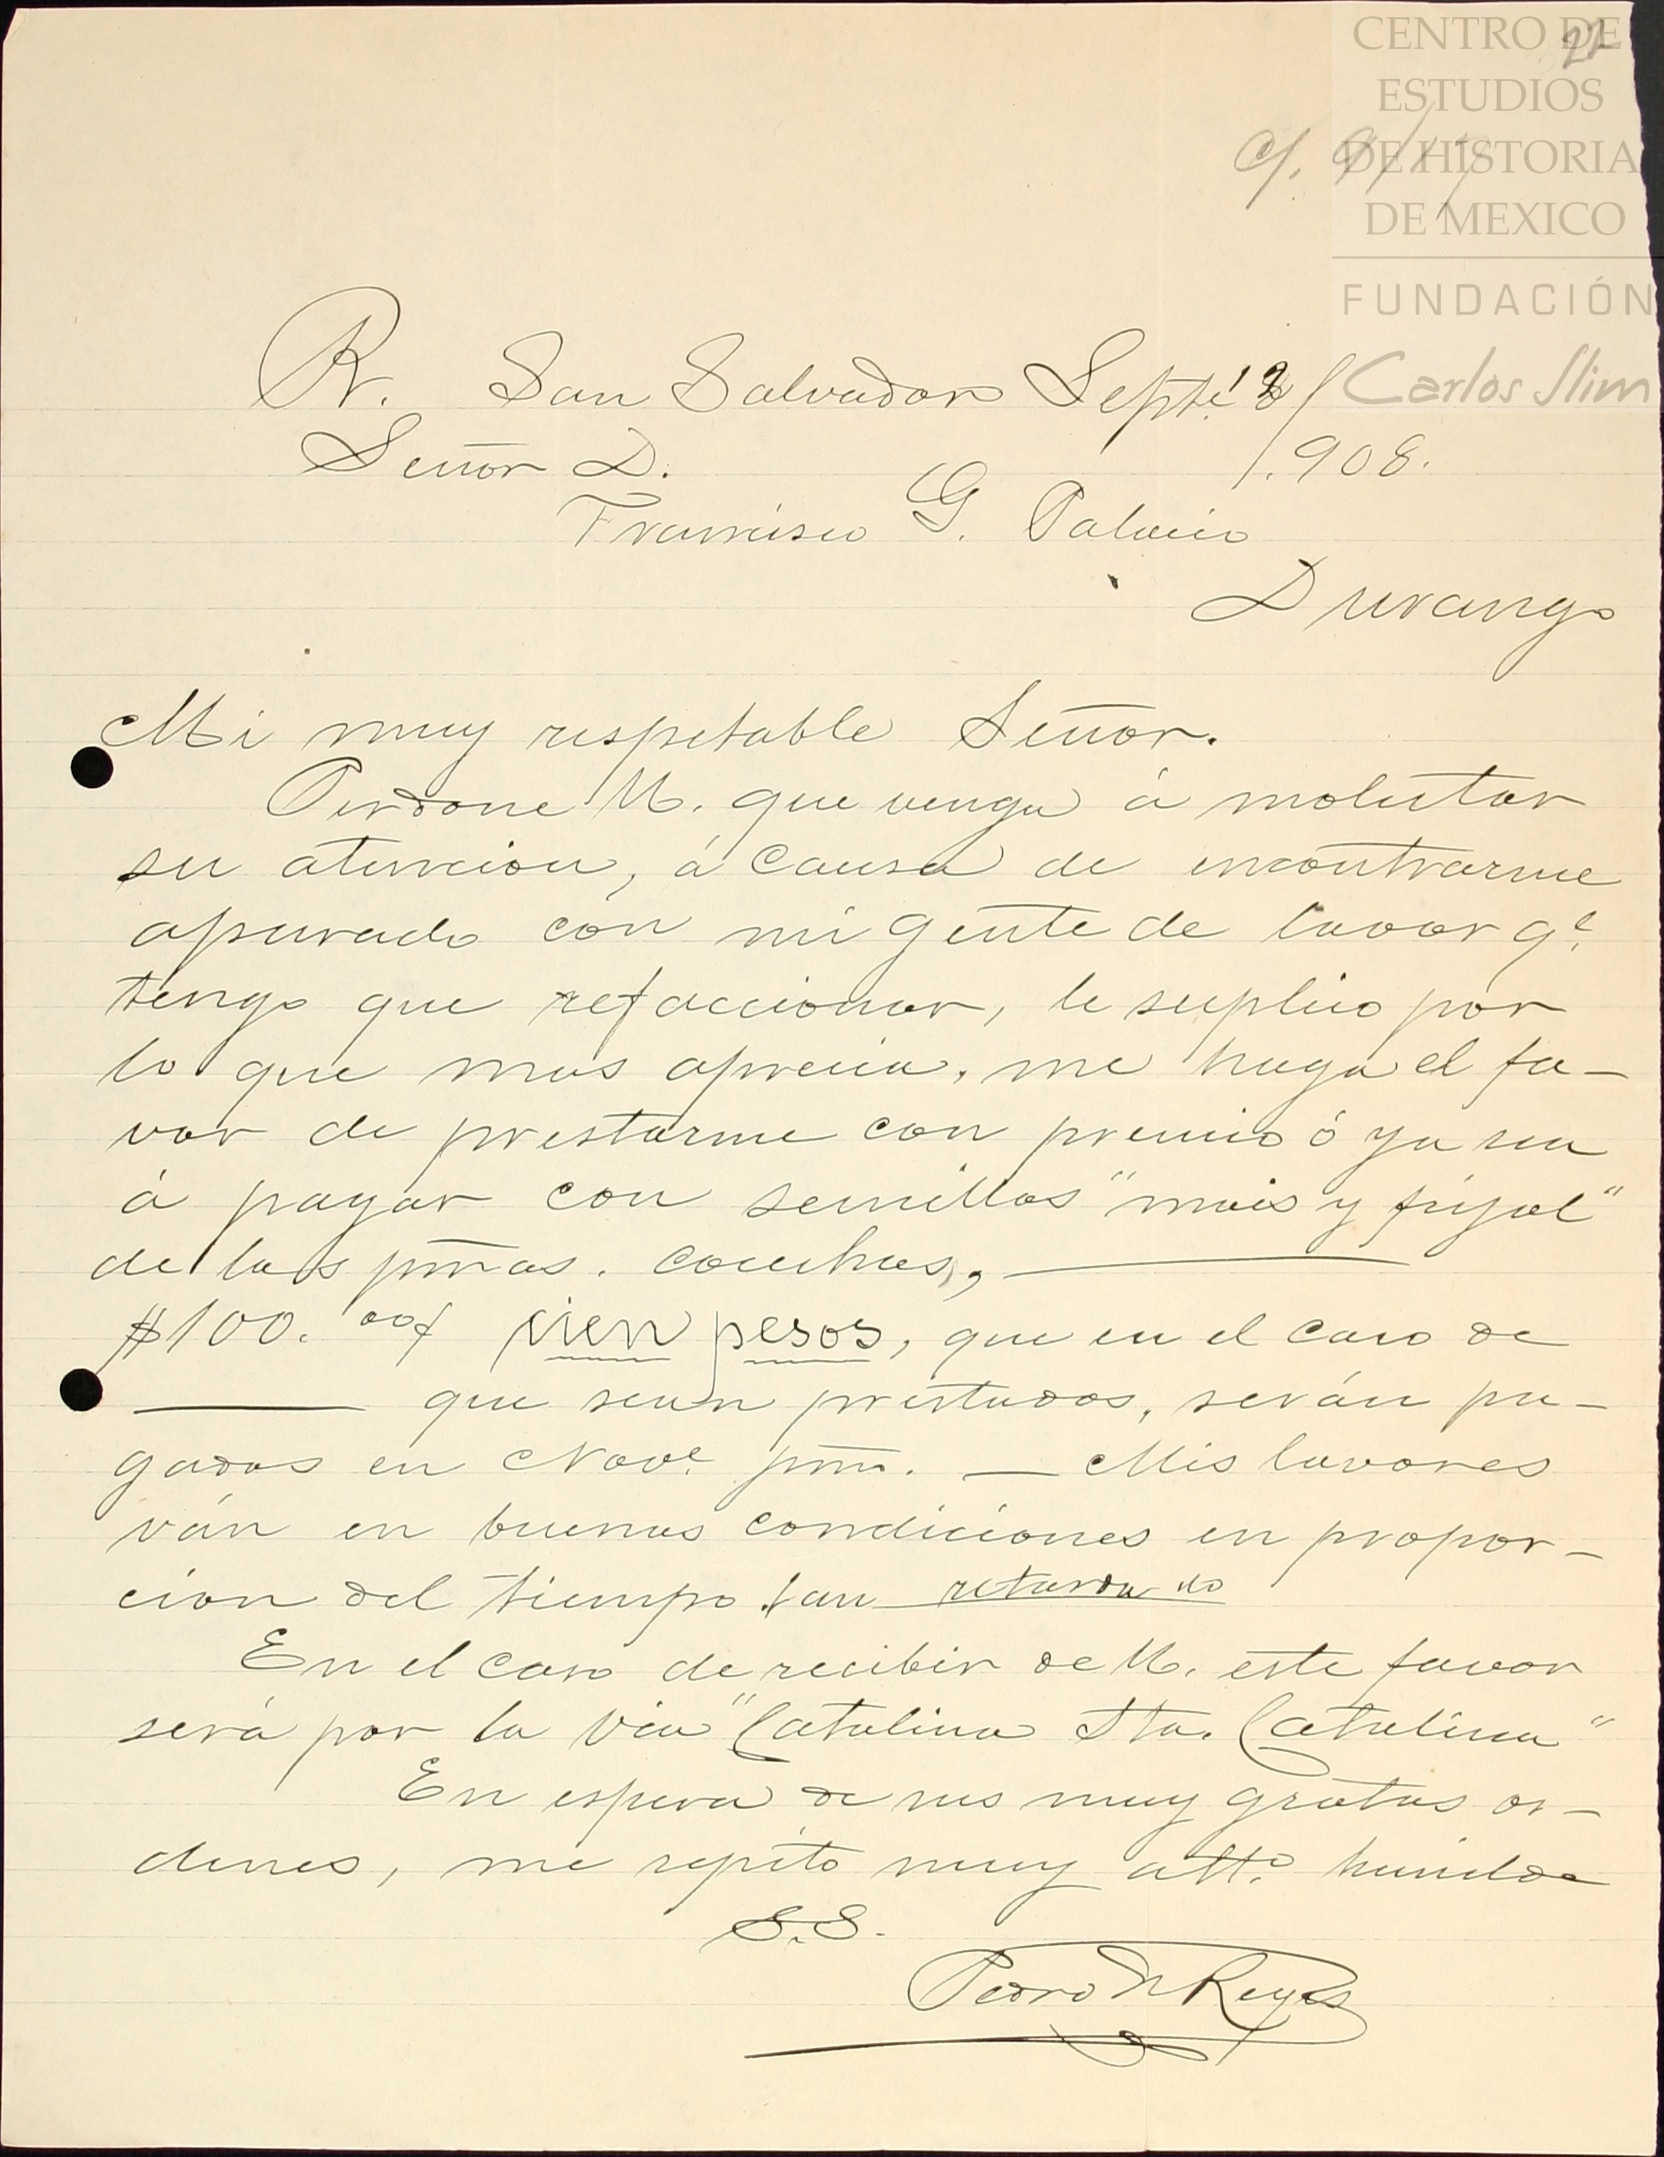 CENTRO DE
ESTUDIOS
DE HISTORIA
DE MEXICO
FUNDACIÓN
Carlos Slim
R. San Salvador Septe. 12/
Señor D. 1.908.
Francisco G. Palacio
Durango
Mi muy respetable Señor.
Perdone U. que venga á molestar
su atencion, á causa de encontrarme
apurado con mi gente de lavor qe.
tengo que refaccionar, le suplico por
lo que mas aprecia, me haga el fa-
vor de prestarme con premio ó ya sea
á pagar con semillas "mais y frijol"
de las pmas. cosechas,
$100. oo/ cien pesos, que en el caso de
que sean prestados, serán pa-
gados en Nove. pmo. — Mis lavores
ván en buenas condiciones en propor-
cion del tiempo tan retardado
En el caso de recibir de U. este favor
será por la via "Catalina Sta. Catalina"
En espera de sus muy gratas or-
denes, me repito muy atto. humilde
S.S.
Pedro N Reyes